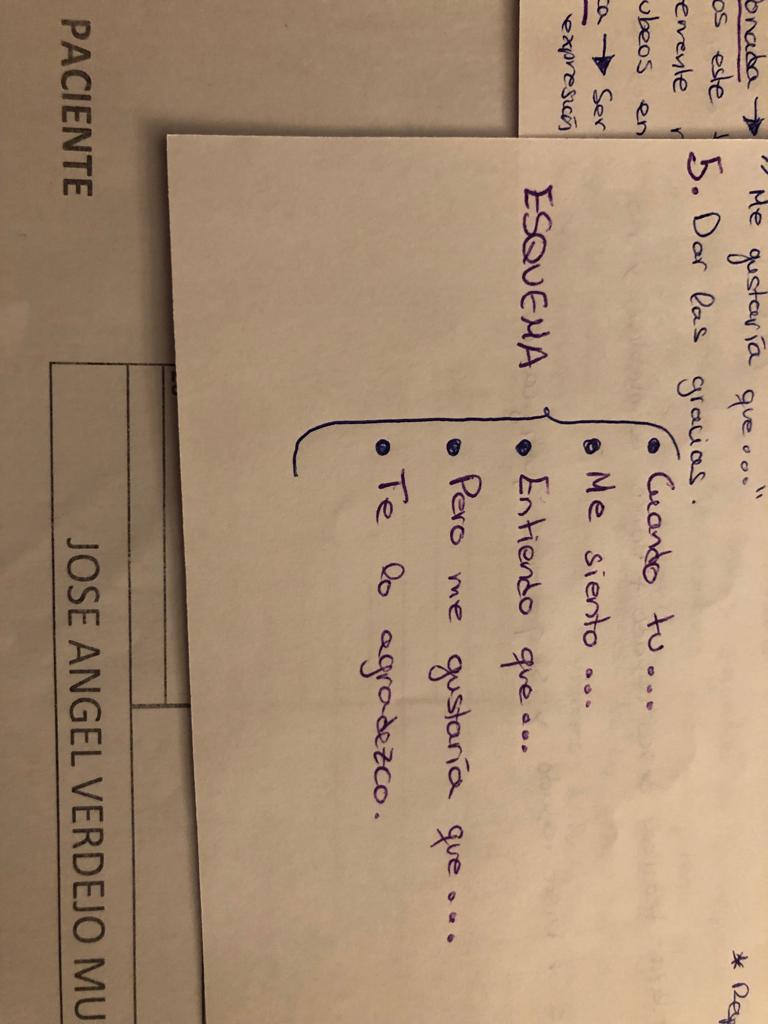 onada →
os este
emente
ubeos en
ca → Ser
expresión
" Me gustaría que..."
5. Dar las gracias.
ESQUEMA
• Cuando tu...
• Me siento...
• Entiendo que...
• Pero me gustaría que....
• Te lo agradezco.
PACIENTE
JOSE ANGEL VERDEJO MU